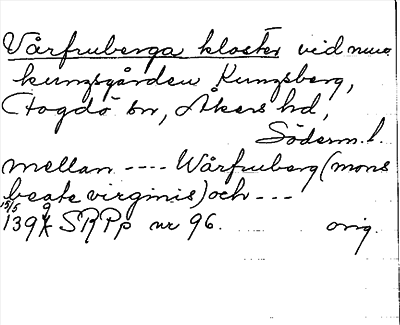 Vårfruberga kloster vid nuv.
kungsgården Kungsberg,
Fogdö sn, Åkers hd,
Söderm. l.
mellan ---- Wårfruberg (mons
beate virginis) och ---
15/5 139 SRPp nr 96. orig.